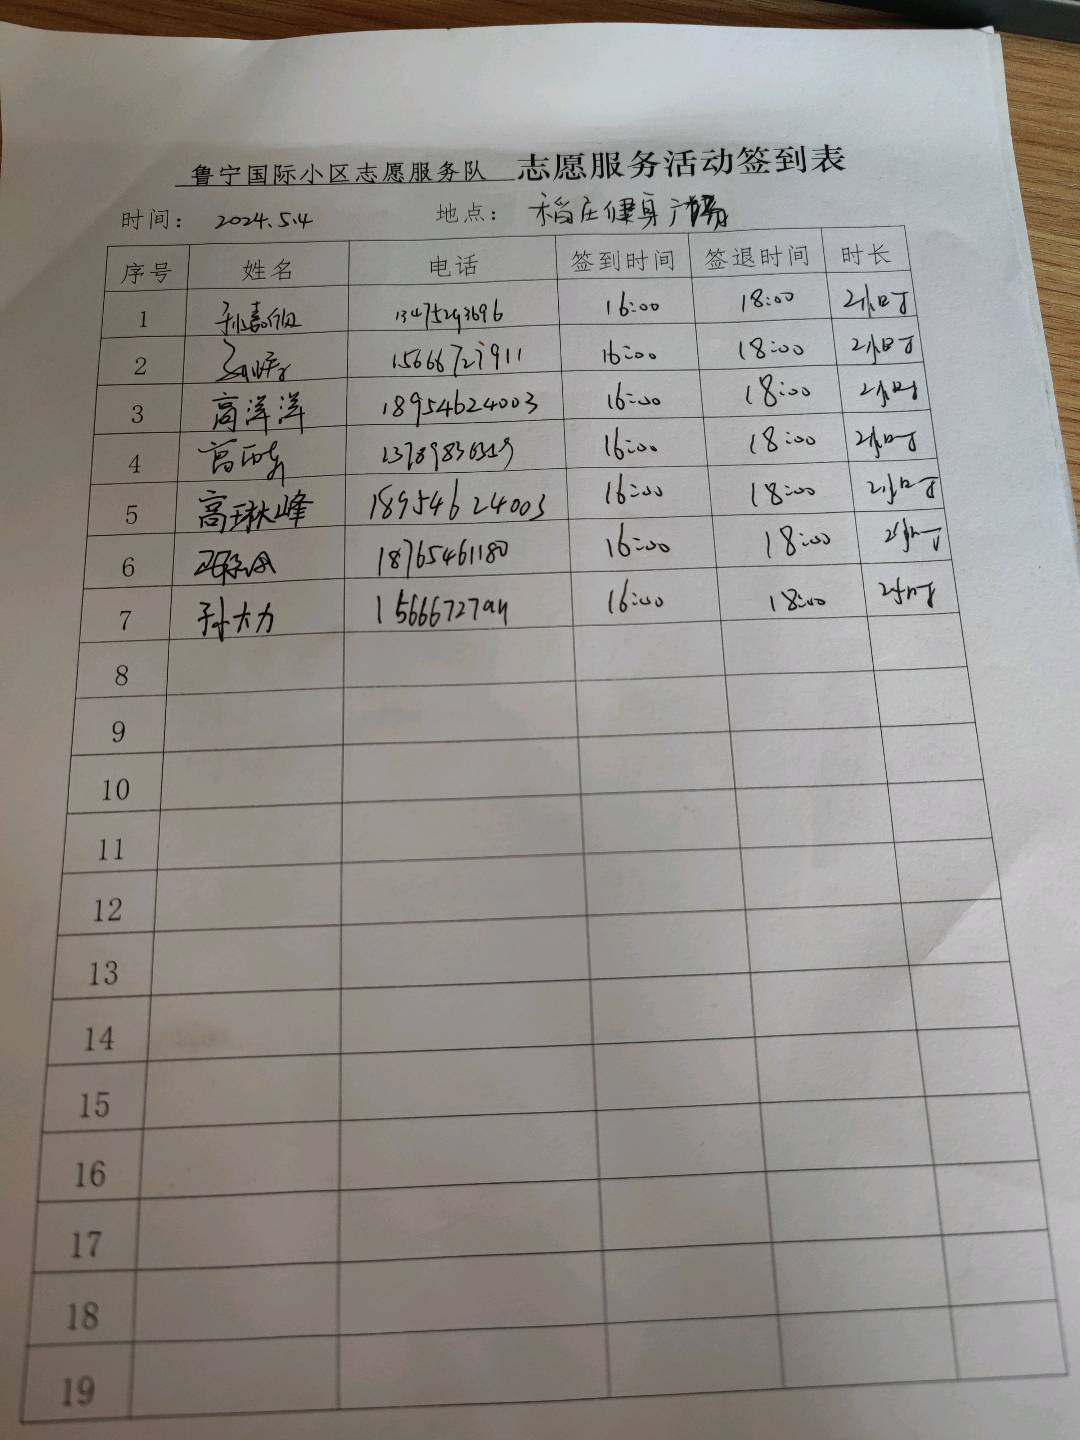 鲁宁国际小区志愿服务队 志愿服务活动签到表
时间： 2024.5.4 地点： 稻庄健身广场
序号 姓名 电话 签到时间 签退时间 时长
1 孙嘉 16:00 18:00 2小时
2 15666727911 16:00 18:00 2小时
3 高洋洋 18954624003 16:00 18:00 2小时
4 高 16:00 18:00 2小时
5 高琳峰 18954624003 16:00 18:00 2小时
6 18765461180 16:00 18:00 2小时
7 孙大力 15666727911 16:00 18:00 2小时
8
9
10
11
12
13
14
15
16
17
18
19